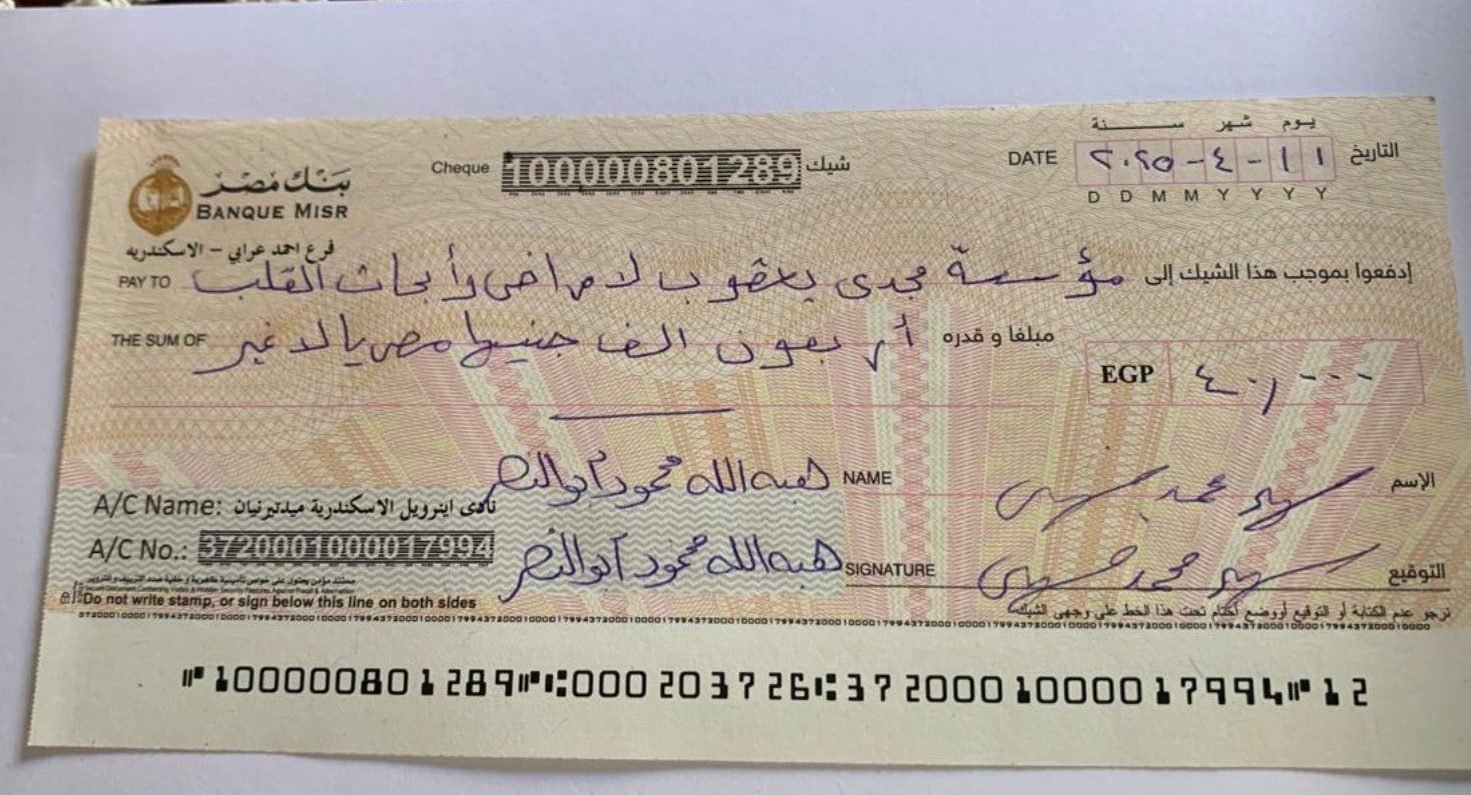 يوم شهر سنة
التاريخ ١١-٤-٢٠٢٥ DATE
D D M M Y Y Y Y
شيك 100000801289 Cheque
بنك مصر
BANQUE MISR
فرع احمد عرابي - الاسكندريه
إدفعوا بموجب هذا الشيك إلى مؤسسة مجدى يعقوب لامراض وأبحاث القلب PAY TO
مبلغا و قدره أربعون الف جنيها مصريا لا غير THE SUM OF
EGP ٤٠,٠٠٠
الإسم سهير محمد NAME هبه الله محمود ابو النصر
A/C Name: نادى اينرويل الاسكندرية ميدتيرنيان
التوقيع سهير محمد SIGNATURE هبه الله محمود ابو النصر
A/C No.: 3720001000017994
Do not write stamp, or sign below this line on both sides
نرجو عدم الكتابة أو التوقيع أو وضع أختام تحت هذا الخط على وجهى الشيك
⑈100000801289⑈⑆000203726⑆3720001000017994⑈12